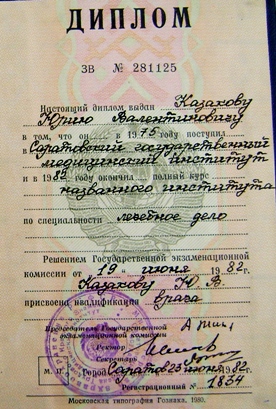 ДИПЛОМ
ЗВ № 281125
Настоящий диплом выдан Казакову
Юрию Валентиновичу
в том, что он в 1975 году поступил
в Саратовский государственный
медицинский институт
и в 1982 году окончил полный курс
названного института
по специальности лечебное дело
Решением Государственной экзаменационной
комиссии от „19“ июня 1982 г.
Казакову Ю. В.
присвоена квалификация врача
Председатель Государственной
экзаменационной комиссии
Ректор
Секретарь
М. П. Город Саратов 23 июня 1982 г.
Регистрационный № 1834
Московская типография Гознака. 1980.